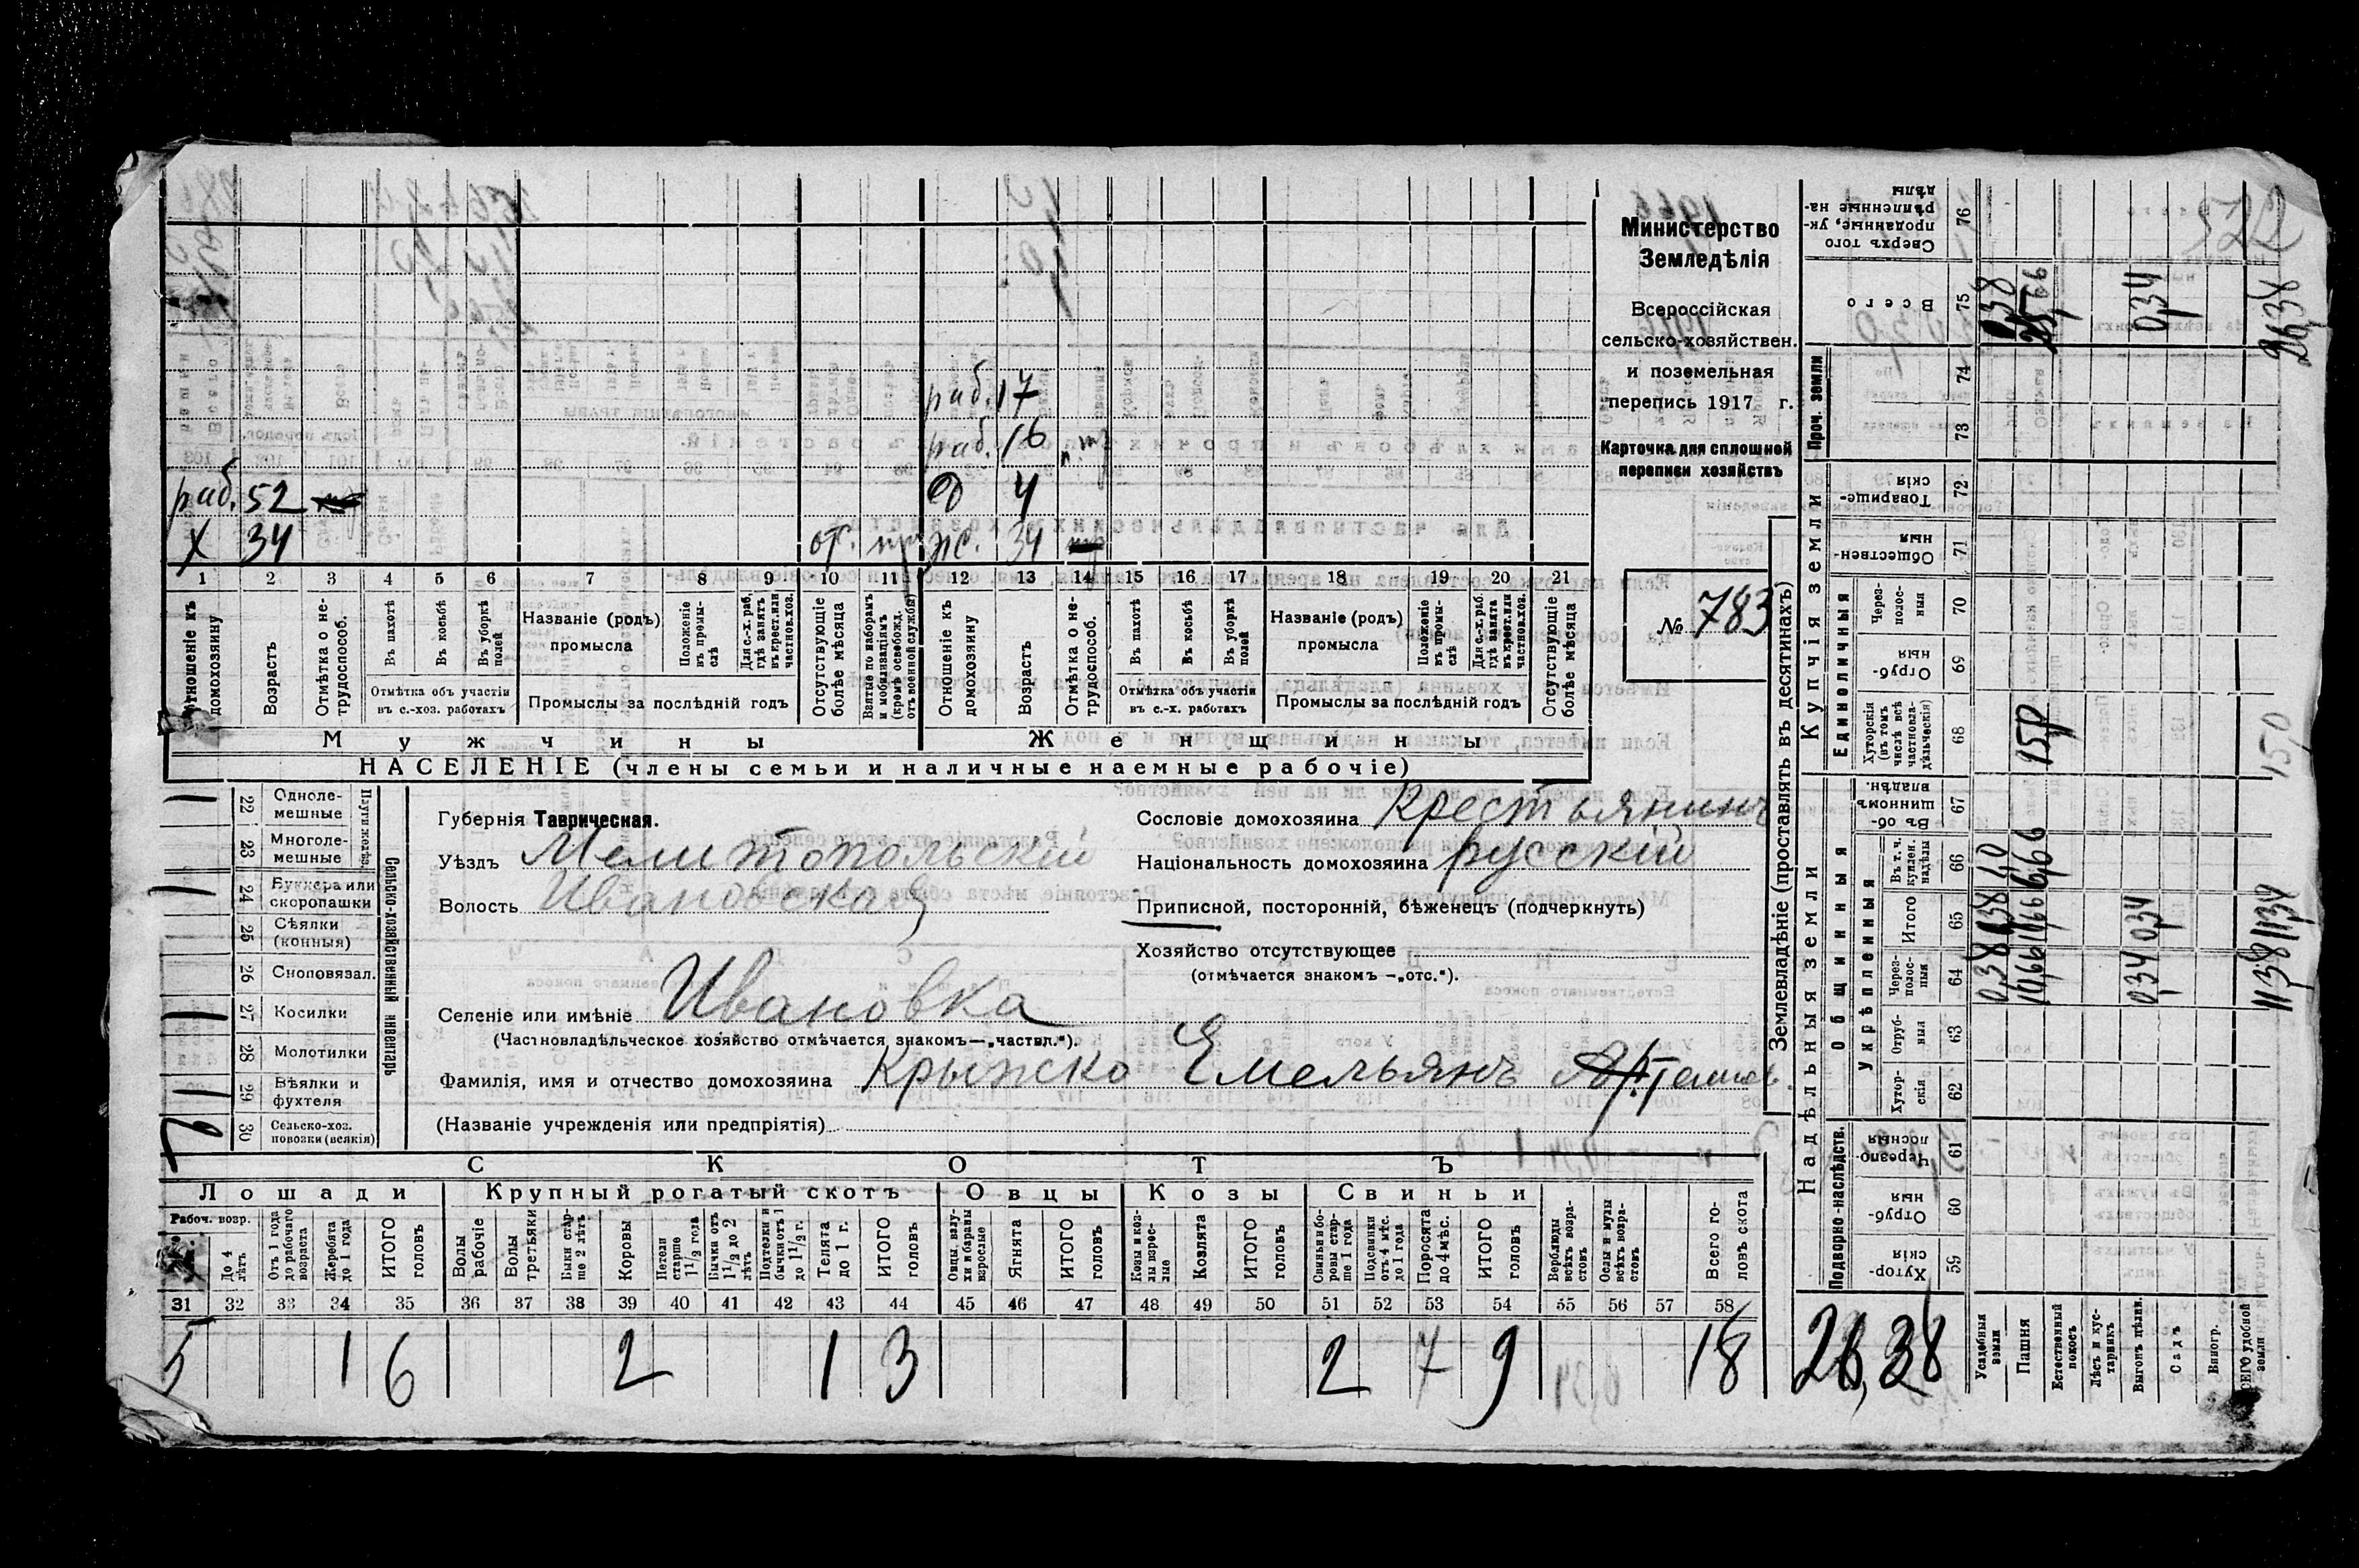 раб. 17
раб. 16
раб. 52 Д 4
Х 34 от. ж. 34
1 2 3 4 5 6 7 8 9 10 11 12 13 14 15 16 17 18 19 20 21
Отношеніе къ домохозяину
Возрастъ
Отмѣтка о нетрудоспособ.
Въ пахотѣ
Въ косьбѣ
Въ уборкѣ полей
Отмѣтка объ участіи въ с.-хоз. работахъ
Названіе (родъ) промысла
Положеніе въ промыслѣ
Для с.-х. раб. гдѣ занятъ въ крест. или частнов. хоз.
Промыслы за послѣдній годъ
Отсутствующіе болѣе мѣсяца
Взятые по наборамъ и мобилизаціямъ (кромѣ освобожд. отъ военной службы)
Отношеніе къ домохозяину
Возрастъ
Отмѣтка о нетрудоспособ.
Въ пахотѣ
Въ косьбѣ
Въ уборкѣ полей
Отмѣтка объ участіи въ с.-х. работахъ
Названіе (родъ) промысла
Положеніе въ промыслѣ
Для с.-х. раб. гдѣ занята въ крест. или частнов. хоз.
Промыслы за послѣдній годъ
Отсутствующіе болѣе мѣсяца
Мужчины Женщины
НАСЕЛЕНІЕ (члены семьи и наличные наемные рабочіе)
Министерство
Земледѣлія
Всероссійская
сельско-хозяйствен.
и поземельная
перепись 1917 г.
Карточка для сплошной
переписи хозяйствъ
№ 783
1 22 Однолемешные
23 Многолемешные
1 24 Буккера или скоропашки
25 Сѣялки (конныя)
26 Сноповязал.
1 27 Косилки
28 Молотилки
1 29 Вѣялки и фухтеля
2 30 Сельско-хоз. повозки (всякія)
Сельско-хозяйственный инвентарь
Губернія Таврическая.
Уѣздъ Мелитопольскій
Волость Ивановская
Селеніе или имѣніе Ивановка
(Частновладѣльческое хозяйство отмѣчается знакомъ—„частвл.“).
Фамилія, имя и отчество домохозяина Крыжско Емельянъ Артемов.
(Названіе учрежденія или предпріятія)
Сословіе домохозяина Крестьянинъ
Національность домохозяина русскій
Приписной, посторонній, бѣженецъ (подчеркнуть)
Хозяйство отсутствующее
(отмѣчается знакомъ —„отс.“).
СКОТЪ
Лошади Крупный рогатый скотъ Овцы Козы Свиньи
Рабоч. возр.
До 4 лѣтъ
Отъ 1 года до рабочаго возраста
Жеребята до 1 года
ИТОГО головъ
Волы рабочіе
Волы третьяки
Быки старше 2 лѣтъ
Коровы
Нетели старше 1 1/2 года
Бычки отъ 1 1/2 до 2 лѣтъ
Подтелки и бычки отъ 1 до 1 1/2 г.
Телята до 1 г.
ИТОГО головъ
Овцы, валухи и бараны взрослые
Ягнята
ИТОГО головъ
Козы и козлы взрослые
Козлята
ИТОГО головъ
Свиньи и боровы старше 1 года
Подсвинки отъ 4 мѣс. до 1 года
Поросята до 4 мѣс.
ИТОГО головъ
Верблюды всѣхъ возрастовъ
Ослы и мулы всѣхъ возрастовъ
Всего головъ скота
31 32 33 34 35 36 37 38 39 40 41 42 43 44 45 46 47 48 49 50 51 52 53 54 55 56 57 58
5 1 6 2 1 3 2 7 9 18
Землевладѣніе (проставлять въ десятинахъ)
Надѣльныя земли
Купчія земли
Проч. земли
Подворно-наслѣдств.
Общинныя
укрѣпленныя
Единоличныя
Хуторскія 59
Отрубныя 60
Черезполосныя 61
Хуторскія 62
Отрубныя 63
Черезполосныя 64
Итого 65
Въ т. ч. куплен. надѣлы 66
Въ общинномъ владѣн. 67
Хуторскія (въ томъ числѣ всѣ частновладѣльческія) 68
Отрубныя 69
Черезполосныя 70
Общественныя 71
Товарищескія 72
73
74
Всего 75
Сверхъ того проданные, укрѣпленные надѣлы 76
26,38
Усадебныя земли 0,38 0,38
Пашня 10,66 10,66 6,66 15
Естественный покосъ
Лѣсъ и кустарникъ
Выгонъ цѣлин. 0,34 0,34 0,34
Садъ
Виногр.
ВСЕГО удобной земли 11,38 15,0 26,38